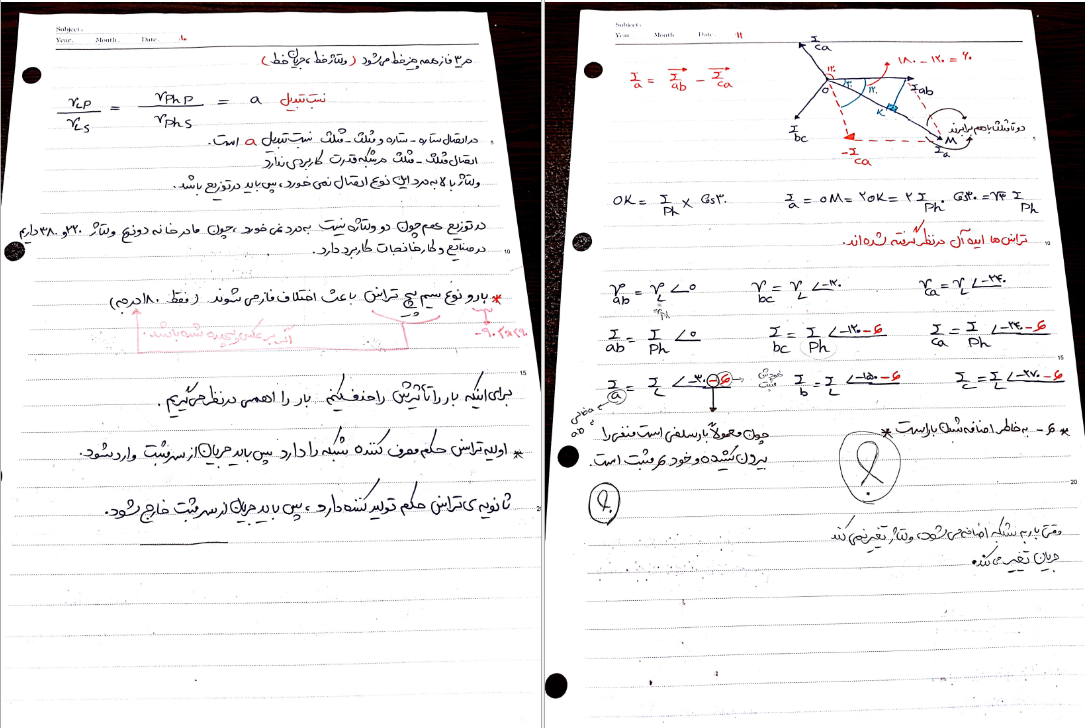 Subject:
Year. Month. Date. ۱۰
هر ۳ فاز همه چیز خط می‌شود (ولتاژ خط، جریان خط)
V_LP / V_LS = V_PhP / V_PhS = a نسبت تبدیل
در اتصال ستاره - ستاره و مثلث - مثلث نسبت تبدیل a است.
اتصال مثلث - مثلث در شبکه قدرت کاربردی ندارد
ولتاژ بالا به درد این نوع اتصال نمی‌خورد، پس باید در توزیع باشد.
در توزیع هم چون دو ولتاژه نیست به درد نمی‌خورد، چون ما در خانه دو نوع ولتاژ ۲۲۰ و ۳۸۰ داریم
در صنایع و کارخانجات کاربرد دارد.
* بار و نوع سیم پیچ ترانس باعث اختلاف فاز می شوند (فقط ۱۸۰ درجه)
اگر برعکس پیچیده شده باشد. -۹۰ تا ۹۰
برای اینکه بار را تأثیرش را حذف کنیم بار را اهمی در نظر می‌گیریم.
* اولیه ترانس حکم مصرف کننده شبکه را دارد پس باید جریان از سر مثبت وارد شود.
ثانویه‌ی ترانس حکم تولید کننده دارد، پس باید جریان از سر مثبت خارج شود.
Subject:
Year. Month. Date. ۱۱
I_a = I_ab - I_ca
I_ca ۱۸۰ - ۱۲۰ = ۶۰
۱۲۰ O ۳۰ ۱۲۰ I_ab
K M
I_bc -I_ca I_a
دو تا مثلث با هم برابرند
OK = I_Ph × Cos۳۰ I_a = OM = ۲OK = ۲ I_Ph . Cos۳۰ = √۳ I_Ph
ترانس ها ایده آل در نظر گرفته شده اند.
V_ab = V_L ∠۰ V_bc = V_L ∠-۱۲۰ V_ca = V_L ∠-۲۴۰
I_ab = I_Ph ∠۰ I_bc = I_Ph ∠-۱۲۰-φ I_ca = I_Ph ∠-۲۴۰-φ
I_a = I_L ∠-۳۰-φ خودش مثبت I_b = I_L ∠-۱۵۰-φ I_c = I_L ∠-۲۷۰-φ
چون معمولاً بار سلفی است منفی را
بیرون کشیده و خود φ مثبت است.
* -φ به خاطر اضافه شدن بار است *
؟
؟
وقتی بار به شبکه اضافه می‌شود، ولتاژ تغییر نمی کند
جریان تغییر می‌کند.